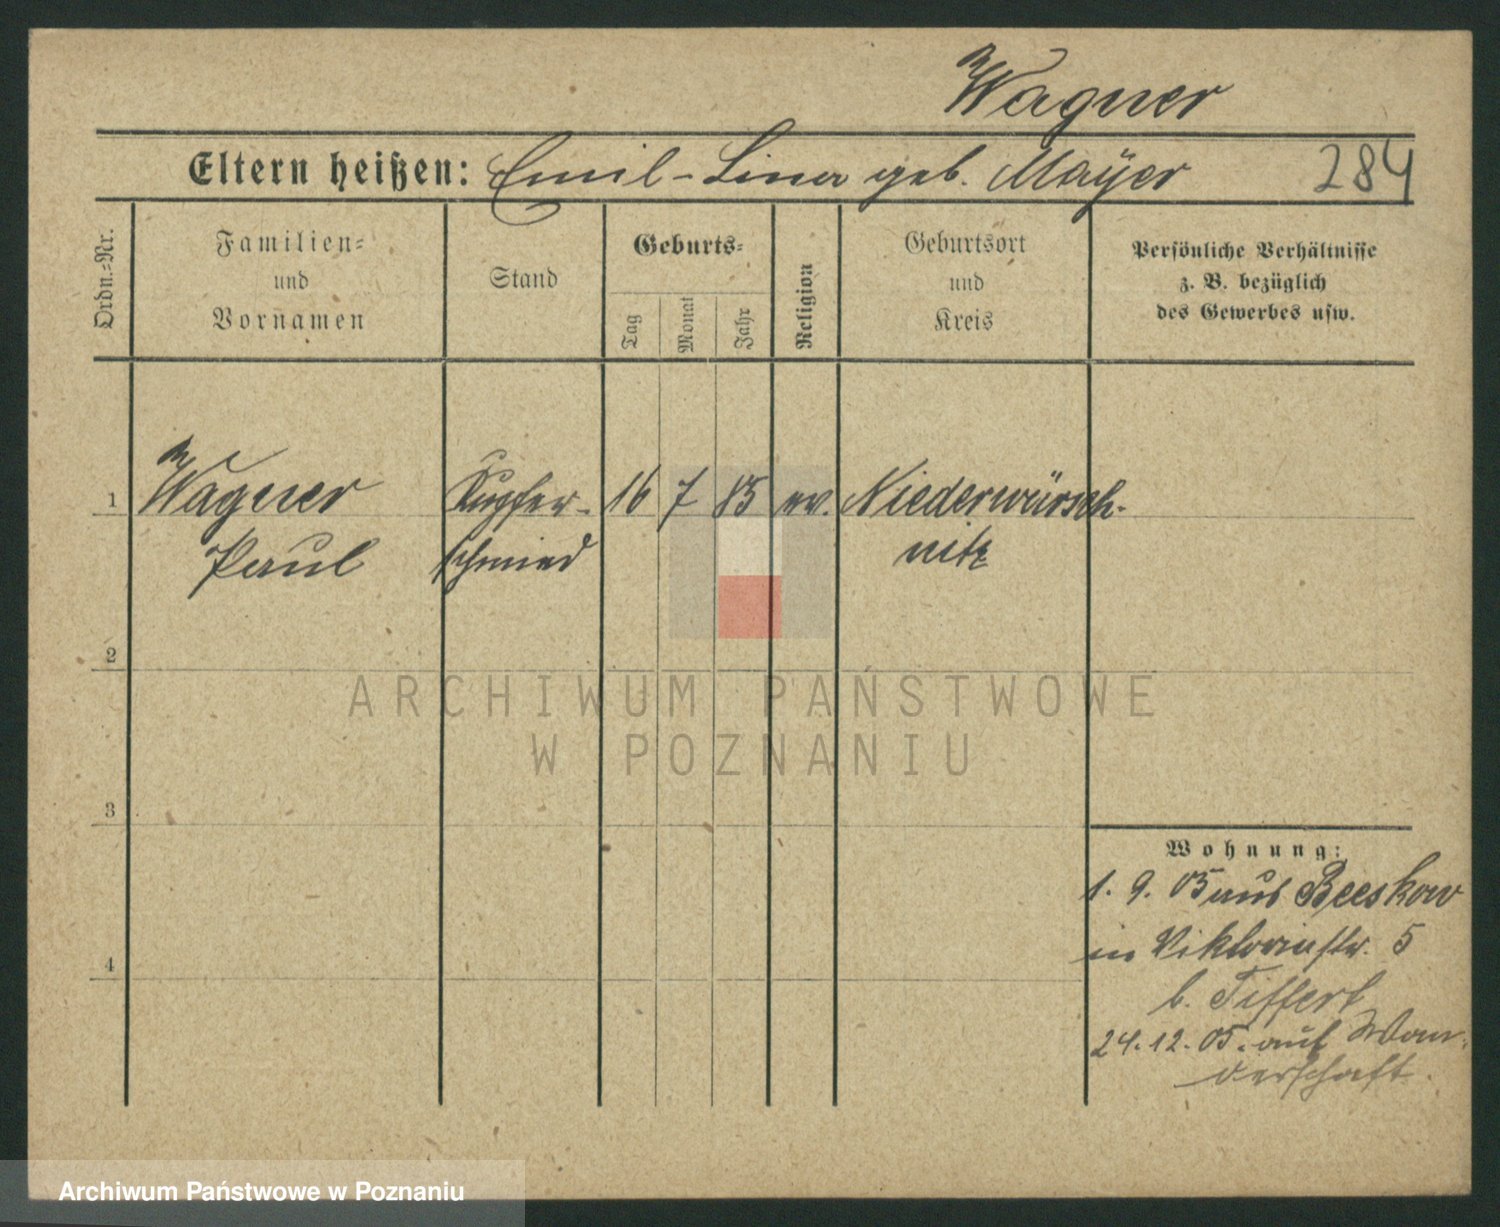 Wagner
Eltern heißen: Emil - Lina geb. Mayer
284
Ordn.=Nr.
Familien=
und
Vornamen
Stand
Geburts=
Tag
Monat
Jahr
Religion
Geburtsort
und
Kreis
Persönliche Verhältnisse
z. B. bezüglich
des Gewerbes usw.
1 Wagner Kupfer- 16 7 85 ev. Niederwürsch-
Paul schmied nitz
2
ARCHIWUM PAŃSTWOWE
W POZNANIU
3
Wohnung:
1. 9. 05 aus Beeskow
in Viktoriastr. 5
4
b. Tiffert
24.12.05. auf Wan-
derschaft.
Archiwum Państwowe w Poznaniu